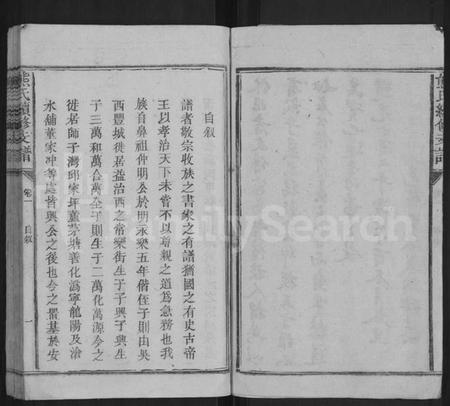 自叙
譜者敬宗收族之書家之有譜猶國之有史古帝
王以孝治天下未嘗不以尊親之道爲急務也我
族自鼻祖仲明公於明永樂五年偕侄子則由吳
西豐城徙居益治西之常樂街生子子興子興生
子三萬和萬合萬全子則生子二萬化萬源今之
徙居師子灣邱家坪蘆茅塘善化溈寧龍陽及滄
水鋪董家冲等處皆興公之後也今之羣基於安
熊氏續修支譜
卷一
自叙
一
熊氏續修支譜
FamilySearch